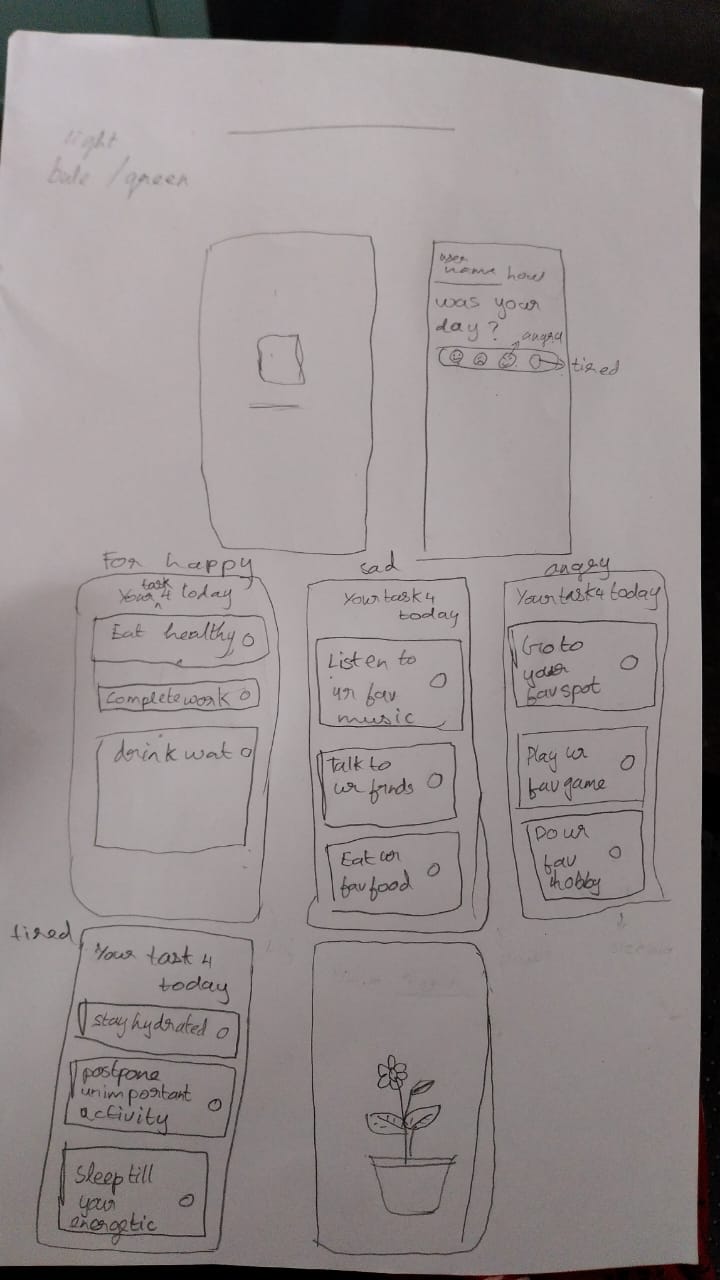 light
bule / green
user
name how
was your
day?
angry
tired
For happy
task
Your 4 today
Eat healthy
Complete work
drink wat
sad
Your task 4
today
Listen to
ur fav
music
Talk to
ur frnds
Eat ur
fav food
angry
Your task 4 today
Go to
your
fav spot
Play ur
fav game
Do ur
fav
hobby
tired
Your task 4
today
stay hydrated
postpone
unimportant
activity
Sleep till
your
energetic